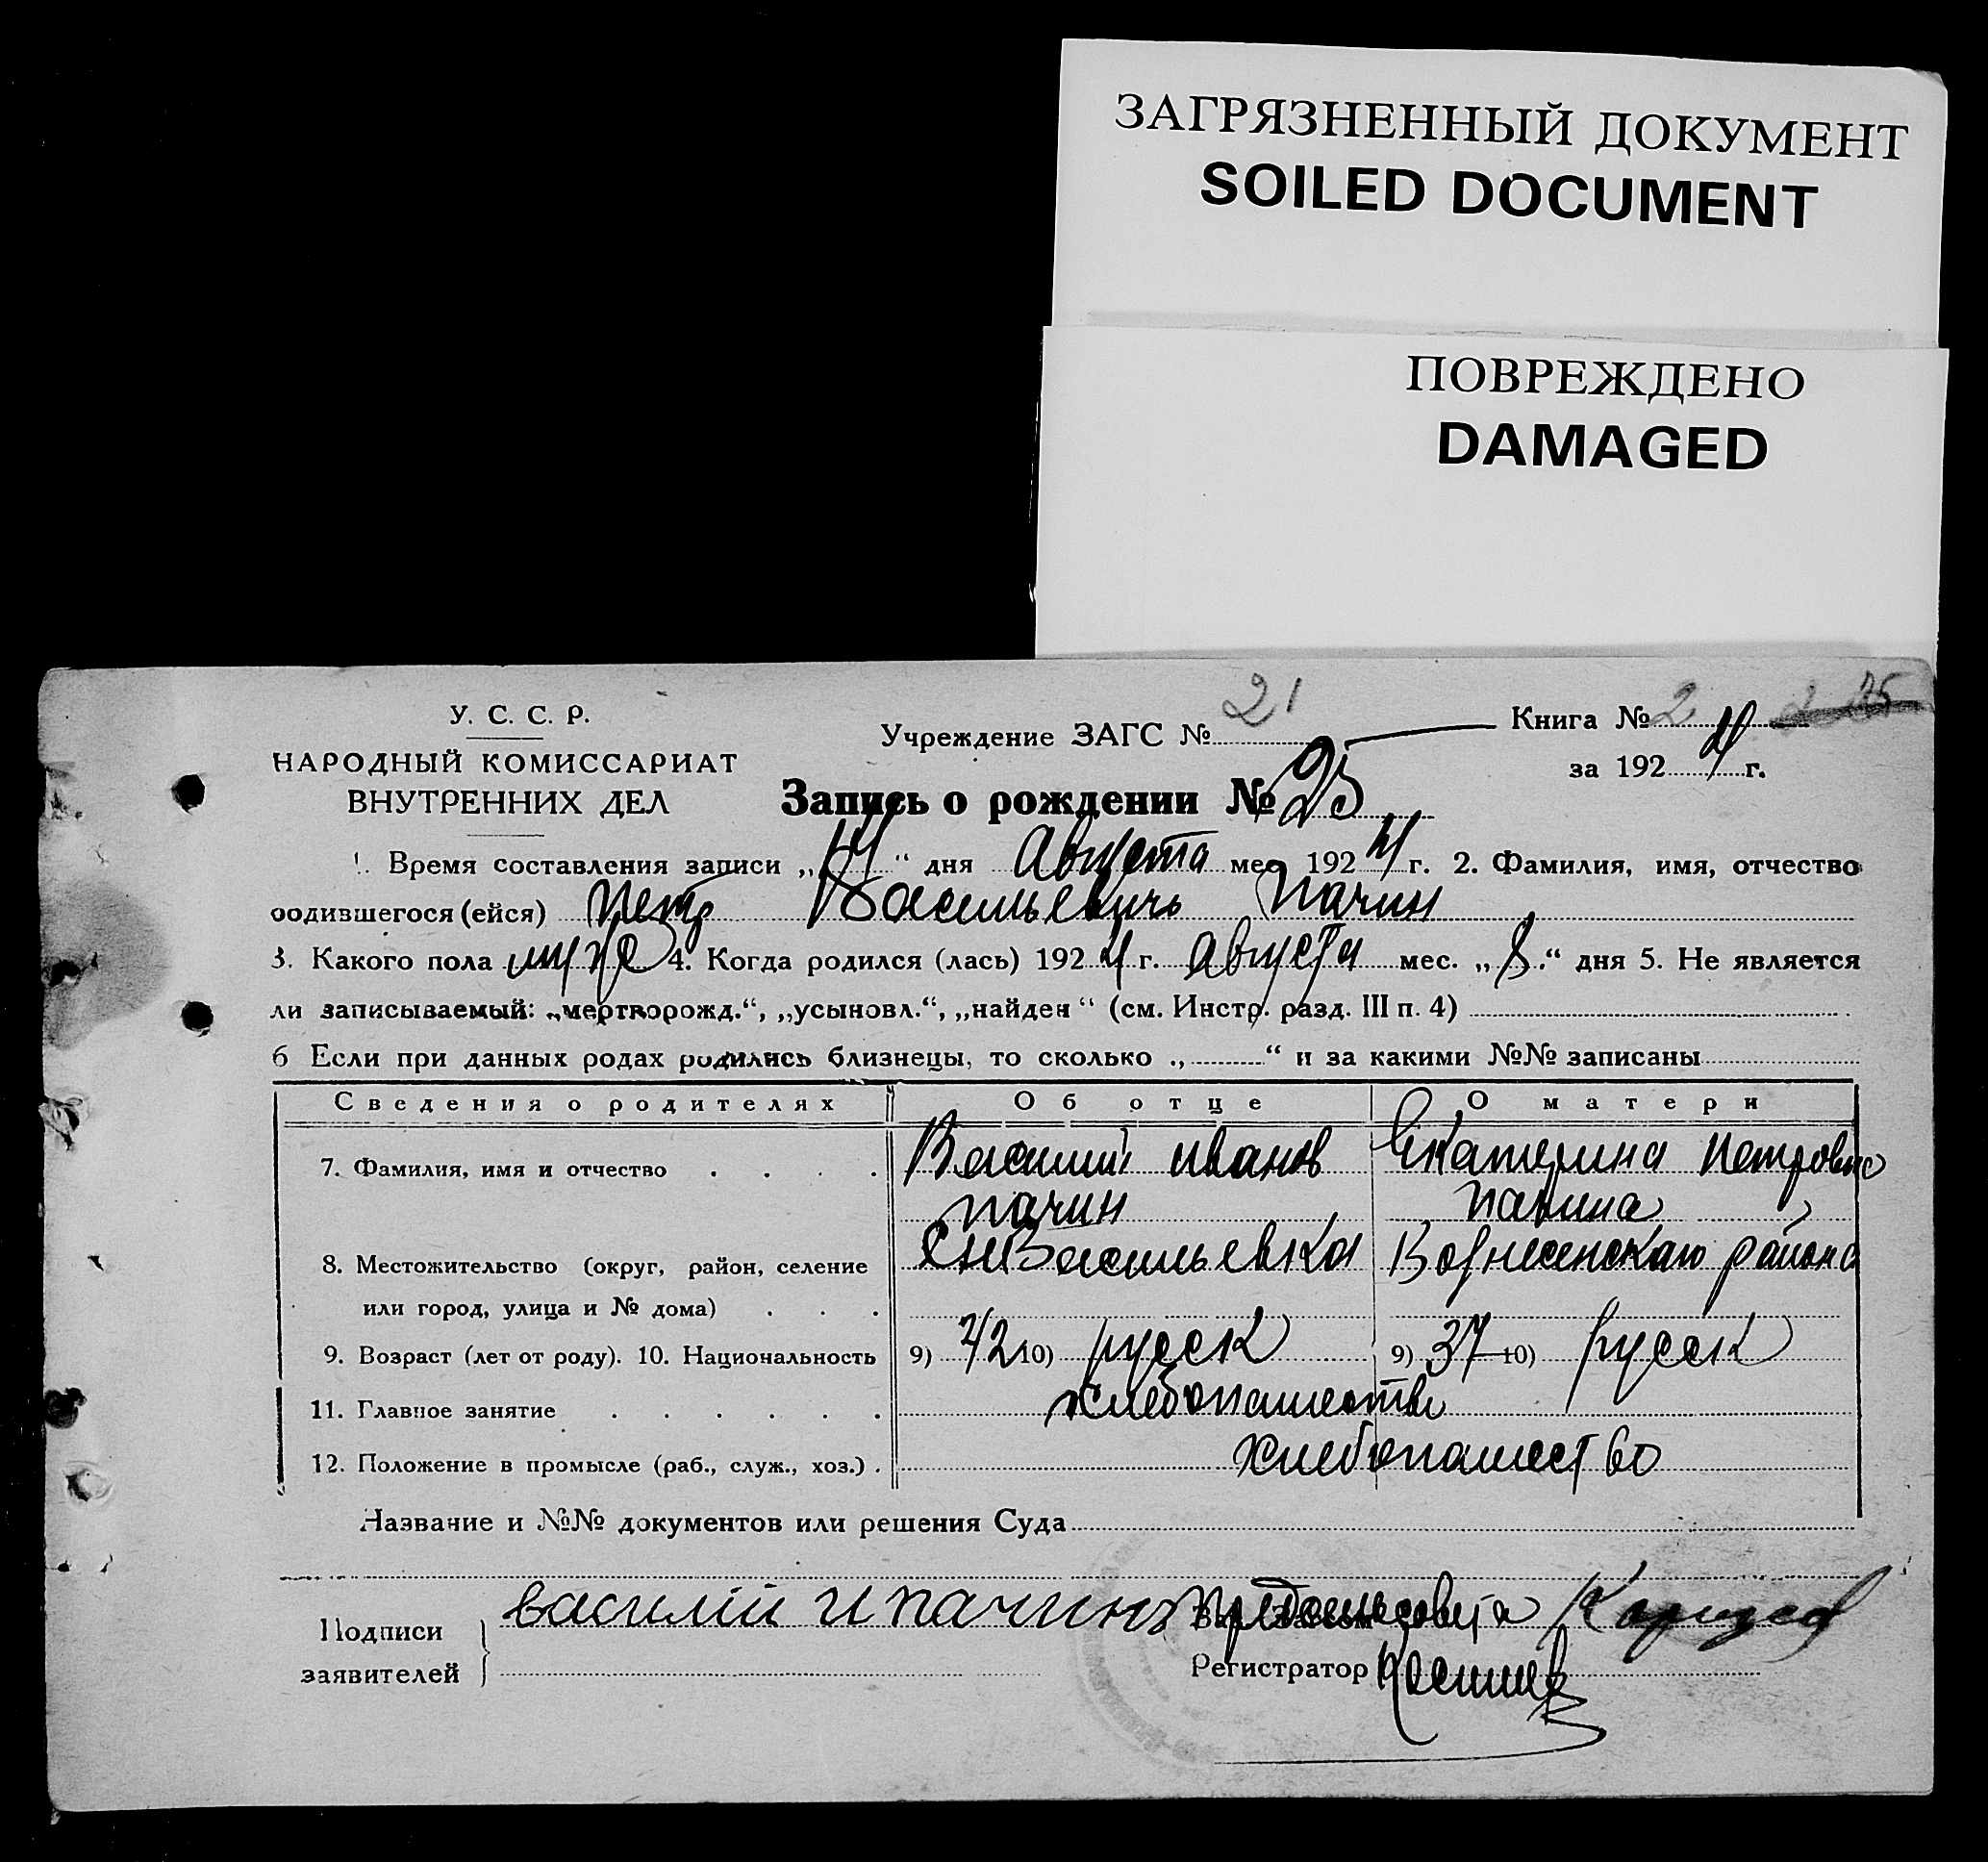 ЗАГРЯЗНЕННЫЙ ДОКУМЕНТ
SOILED DOCUMENT
ПОВРЕЖДЕНО
DAMAGED
У. С. С. Р.
НАРОДНЫЙ КОМИССАРИАТ
ВНУТРЕННИХ ДЕЛ
Учреждение ЗАГС № 21
Книга № 2
за 1924 г.
Запись о рождении № 25
1. Время составления записи „14“ дня Августа мес 1924 г. 2. Фамилия, имя, отчество
родившегося (ейся) Петр Васильевичь Пачин
3. Какого пола муж 4. Когда родился (лась) 1924 г. Августа мес. „8.“ дня 5. Не является
ли записываемый: „мертворожд.“, „усыновл.“, „найден“ (см. Инстр. разд. III п. 4)
6 Если при данных родах родились близнецы, то сколько „ “ и за какими №№ записаны
Сведения о родителях Об отце О матери
7. Фамилия, имя и отчество Василий Иванов Екатерина Петровно
Пачин Пачина
8. Местожительство (округ, район, селение Васильевка Вознесенскаго района
или город, улица и № дома)
9. Возраст (лет от роду). 10. Национальность 9) 42 10) русск 9) 37 10) русск
11. Главное занятие хлебопашество
12. Положение в промысле (раб., служ., хоз.) хлебопашество
Название и №№ документов или решения Суда
Подписи
заявителей
василий и пачинъ
Предсельсовета
Регистратор